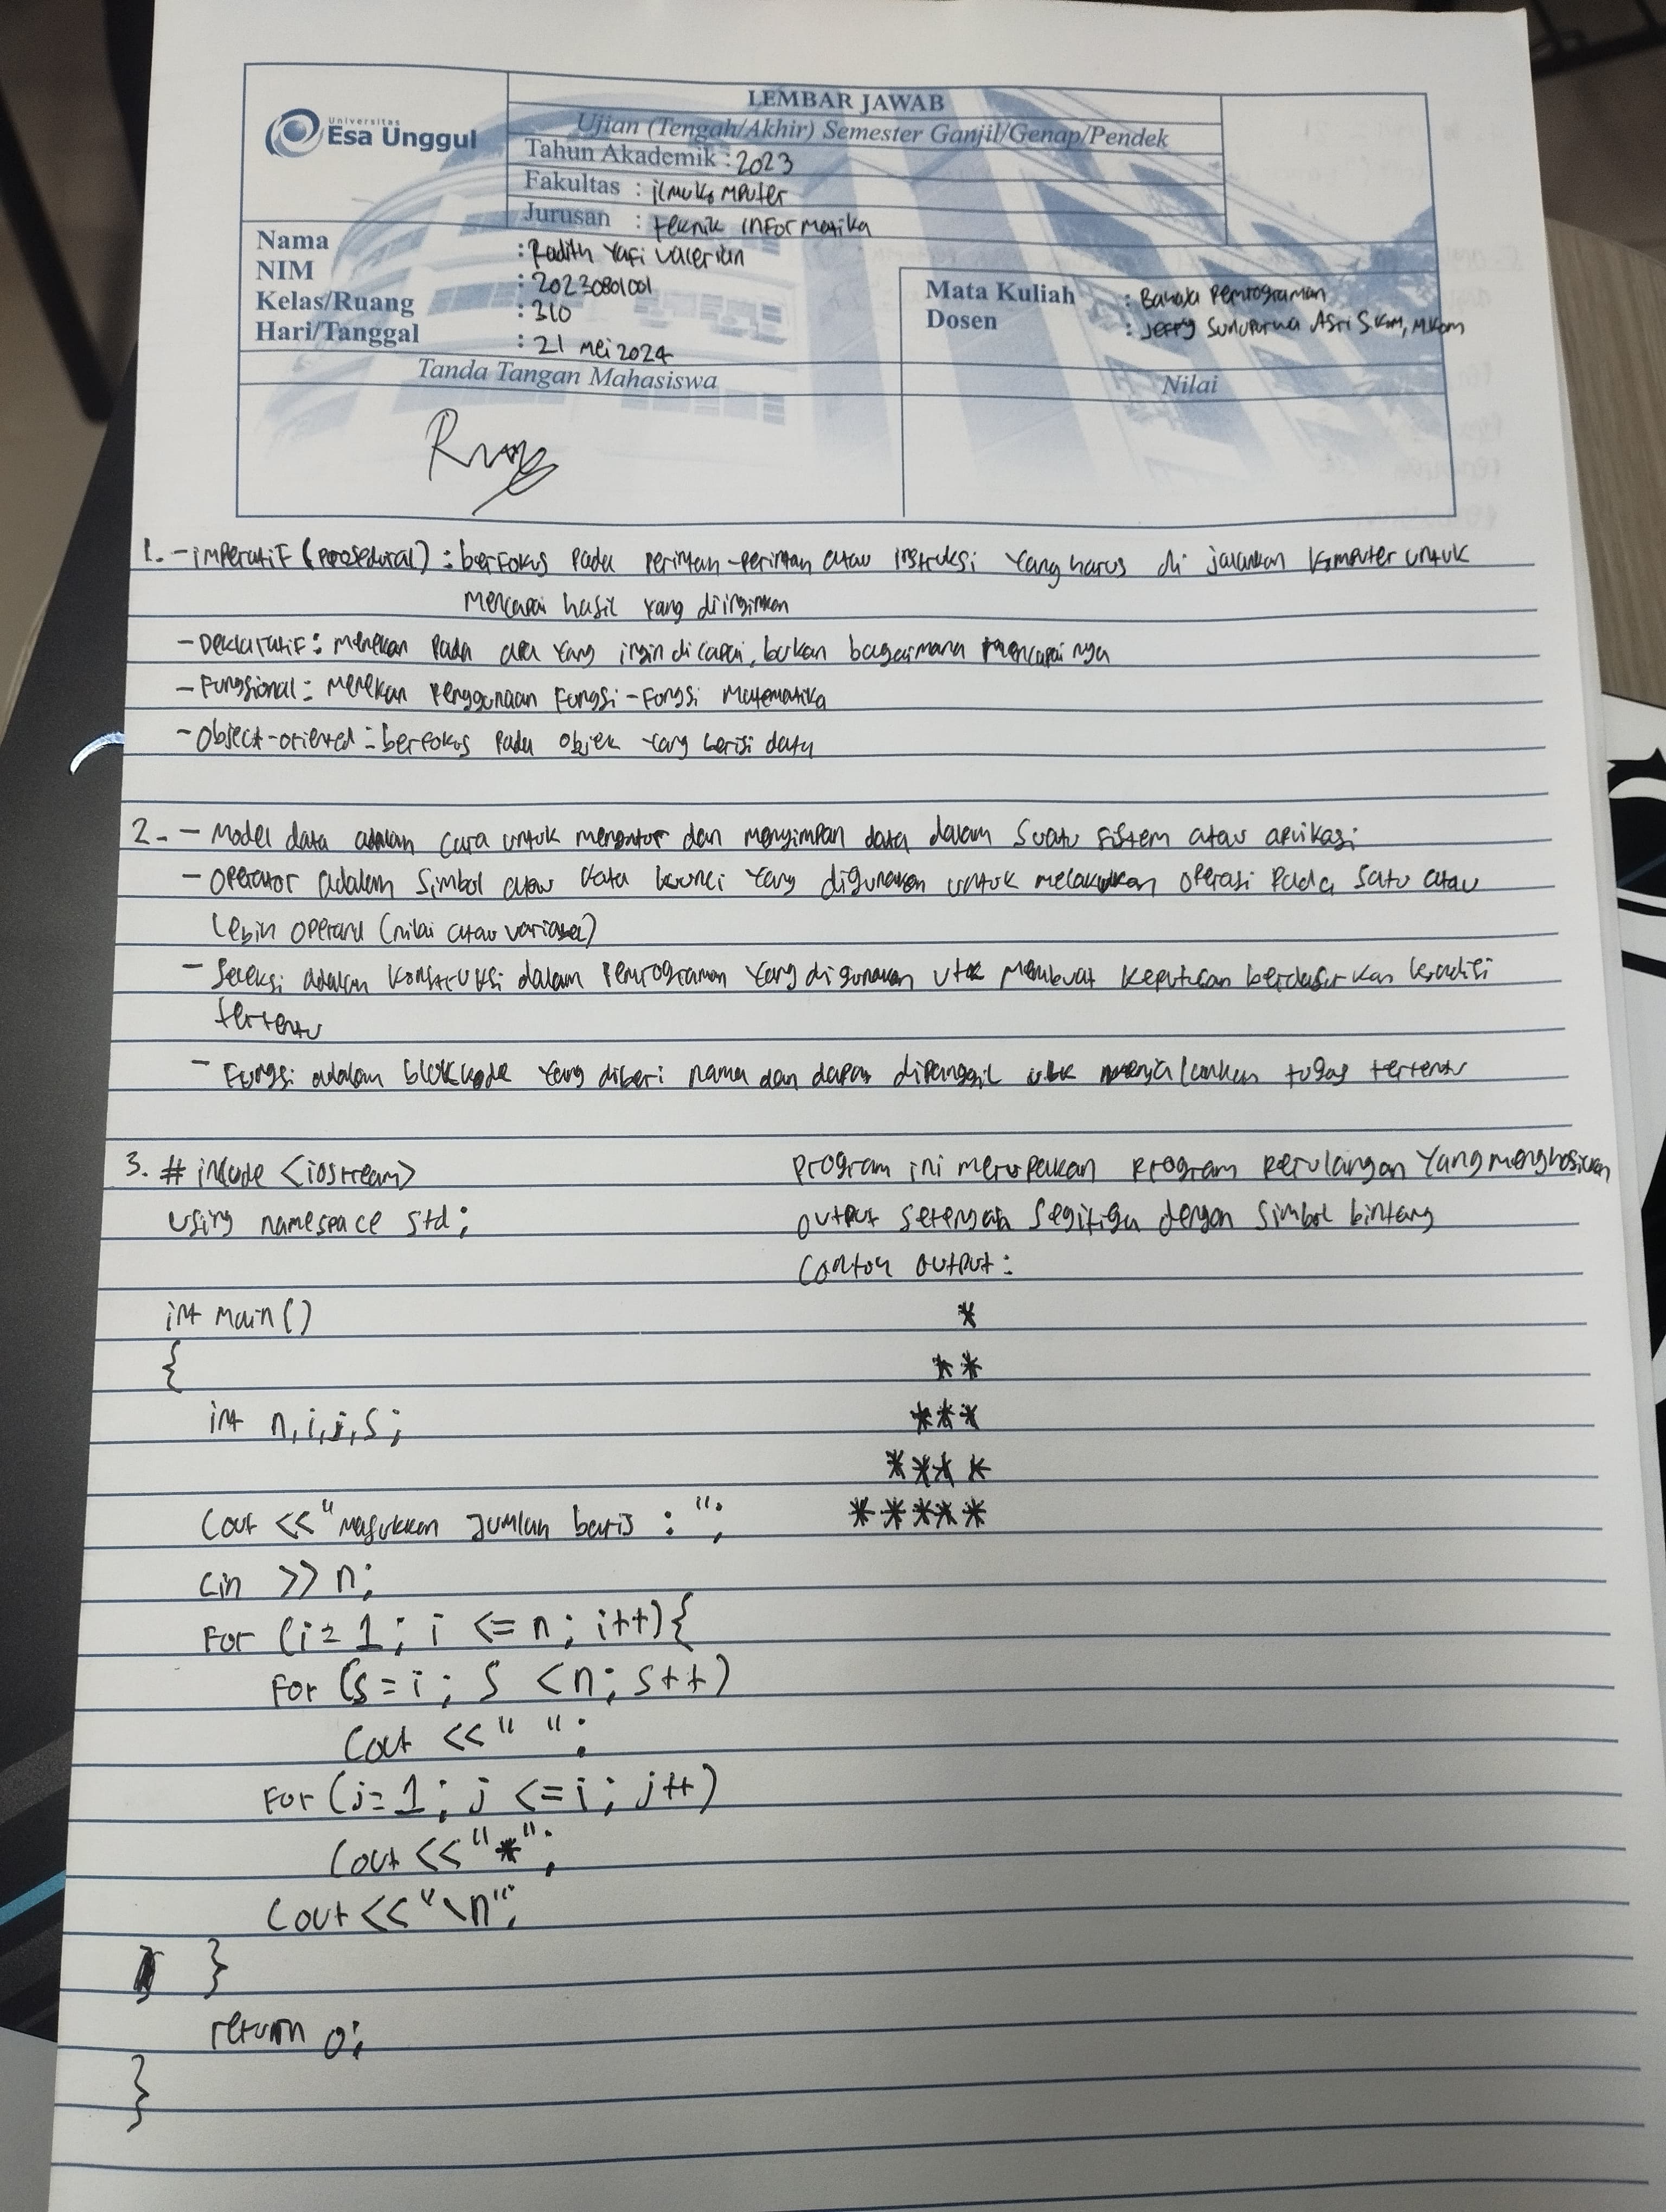 Universitas
Esa Unggul
LEMBAR JAWAB
Ujian (Tengah/Akhir) Semester Ganjil/Genap/Pendek
Tahun Akademik : 2023
Fakultas : ilmu komputer
Jurusan : teknik informatika
Nama : Radith Yafi Valerian
NIM : 20230801001
Kelas/Ruang : 310
Hari/Tanggal : 21 Mei 2024
Mata Kuliah : Bahasa Pemrograman
Dosen : Jeffry Sunupurwa Asri S.Kom, M.Kom
Tanda Tangan Mahasiswa
Nilai
1. - imperatif (prosedural) : berfokus pada perintah-perintah atau instruksi yang harus di jalankan komputer untuk
mencapai hasil yang diinginkan
- Deklaratif : menekan pada apa yang ingin dicapai, bukan bagaimana mencapainya
- Fungsional : menekan penggunaan fungsi-fungsi matematika
- Object-oriented : berfokus pada objek yang berisi data
2. - Model data adalah cara untuk mengatur dan menyimpan data dalam suatu sistem atau aplikasi
- operator adalah simbol atau kata kunci yang digunakan untuk melakukan operasi pada satu atau
lebih operand (nilai atau variabel)
- Seleksi adalah konstruksi dalam pemrograman yang digunakan utk membuat keputusan berdasarkan kondisi
tertentu
- Fungsi adalah blok kode yang diberi nama dan dapat dipanggil utk menjalankan tugas tertentu
3. # include <iostream>
using namespace std;
int main()
{
int n,i,j,s;
Cout <<"Masukkan Jumlah baris : ";
Cin >> n;
For (i=1; i <= n; i++){
For (s=i; s <n; s++)
Cout <<" ";
For (j=1; j <=i; j++)
Cout <<"*";
Cout <<"\n";
}
return 0;
}
program ini merupakan program perulangan yang menghasilkan
output setengah segitiga dengan simbol bintang
Contoh output :
*
**
***
****
*****